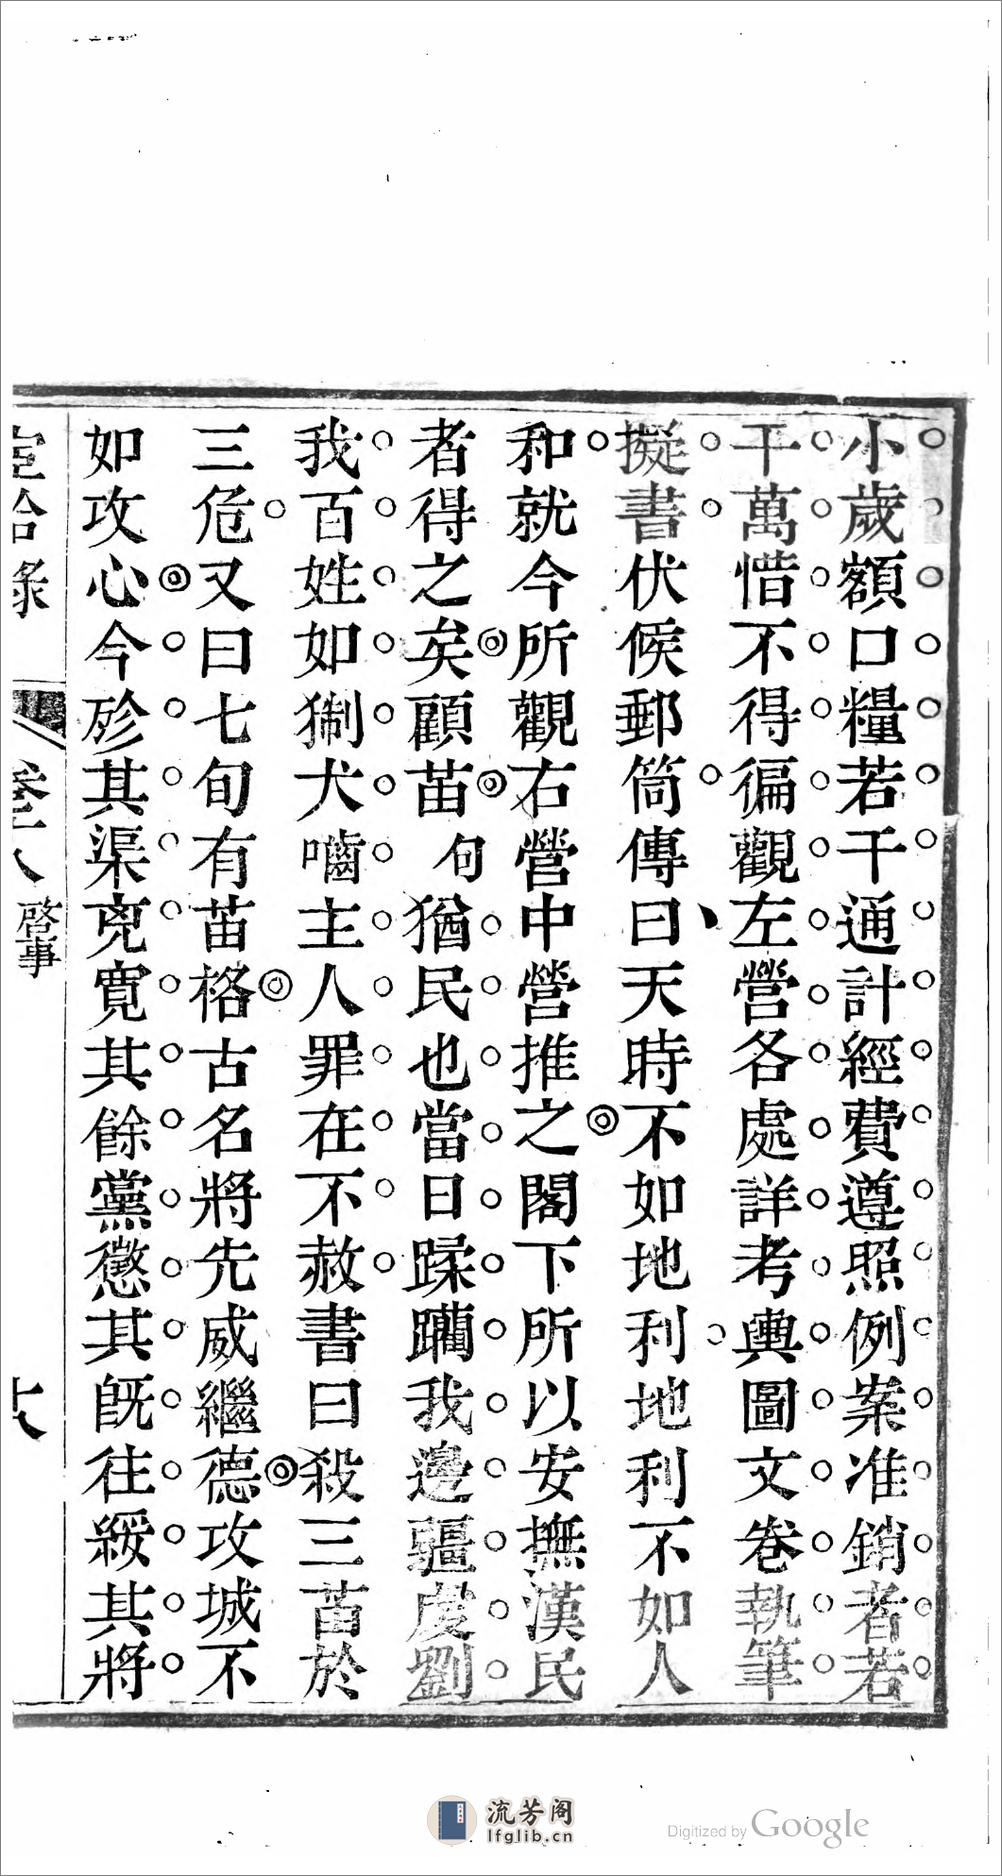 小歲額口糧若干通計經費遵照例案准銷者若
干萬惜不得徧觀左營各處詳考輿圖文卷執筆
擬書伏候郵筒傳曰天時不如地利地利不如人
和就今所觀右營中營推之閣下所以安撫漢民
者得之矣顧苗句猶民也當日蹂躪我邊疆虔劉
我百姓如猘犬嚙主人罪在不赦書曰殺三苗於
三危又曰七旬有苗格古名將先威繼德攻城不
如攻心今殄其渠兇寬其餘黨懲其旣往綏其將
卷八 啓事
十八
流芳阁
lfglib.cn
Digitized by Google